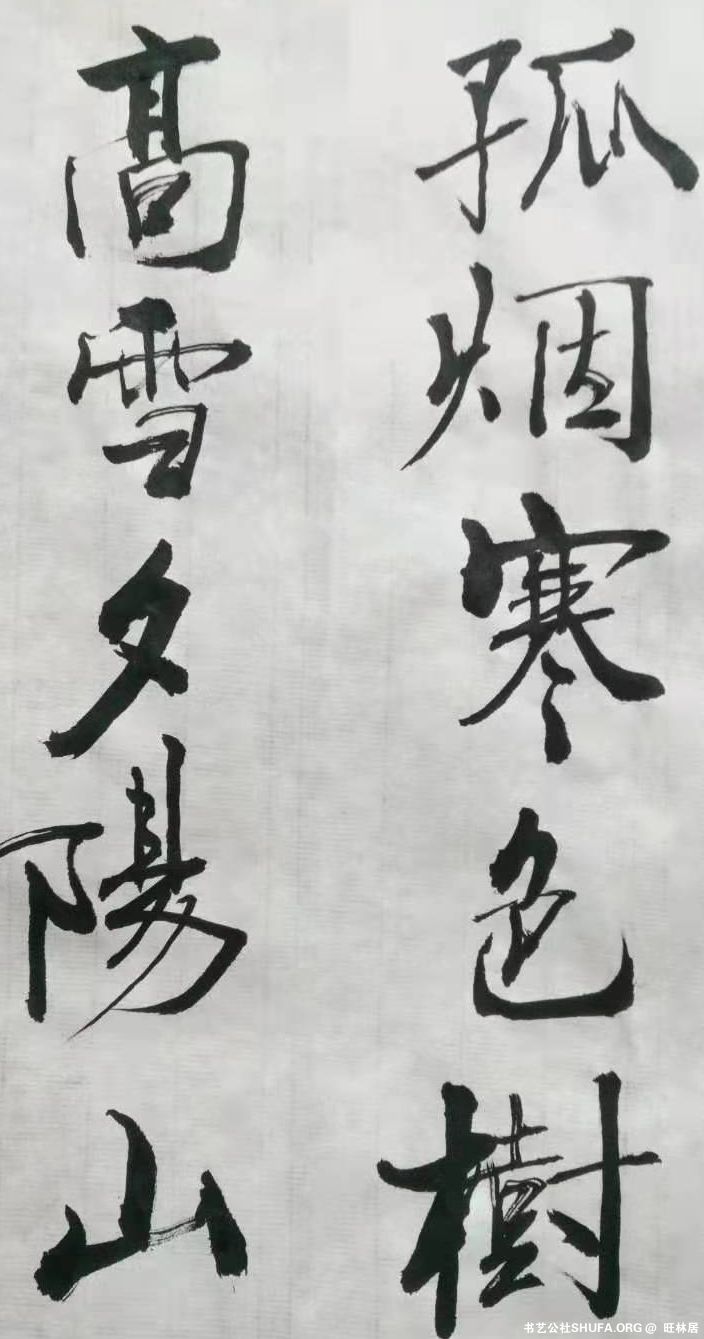 孤烟寒色樹
高雪夕陽山
书艺公社SHUFA.ORG @ 旺林居